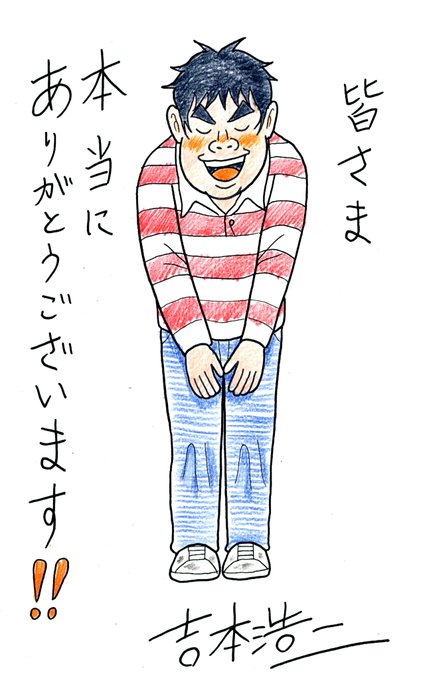 皆さま
本当に
ありがとうございます!!
吉本浩二